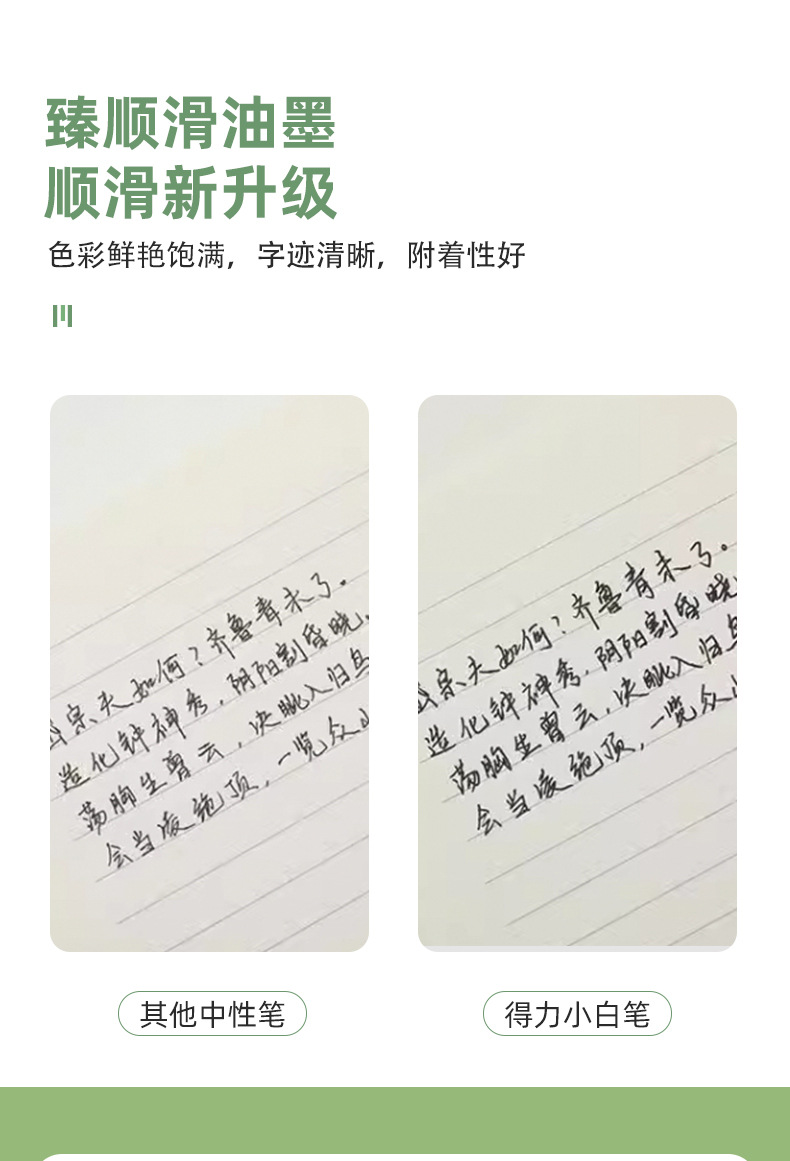 臻顺滑油墨
顺滑新升级
色彩鲜艳饱满，字迹清晰，附着性好
宗夫如何？齐鲁青未了。
造化钟神秀，阴阳割昏晓，
荡胸生曾云，决眦入归鸟
会当凌绝顶，一览众山
宗夫如何？齐鲁青未了。
造化钟神秀，阴阳割昏晓
荡胸生曾云，决眦入归鸟
会当凌绝顶，一览众山
其他中性笔
得力小白笔